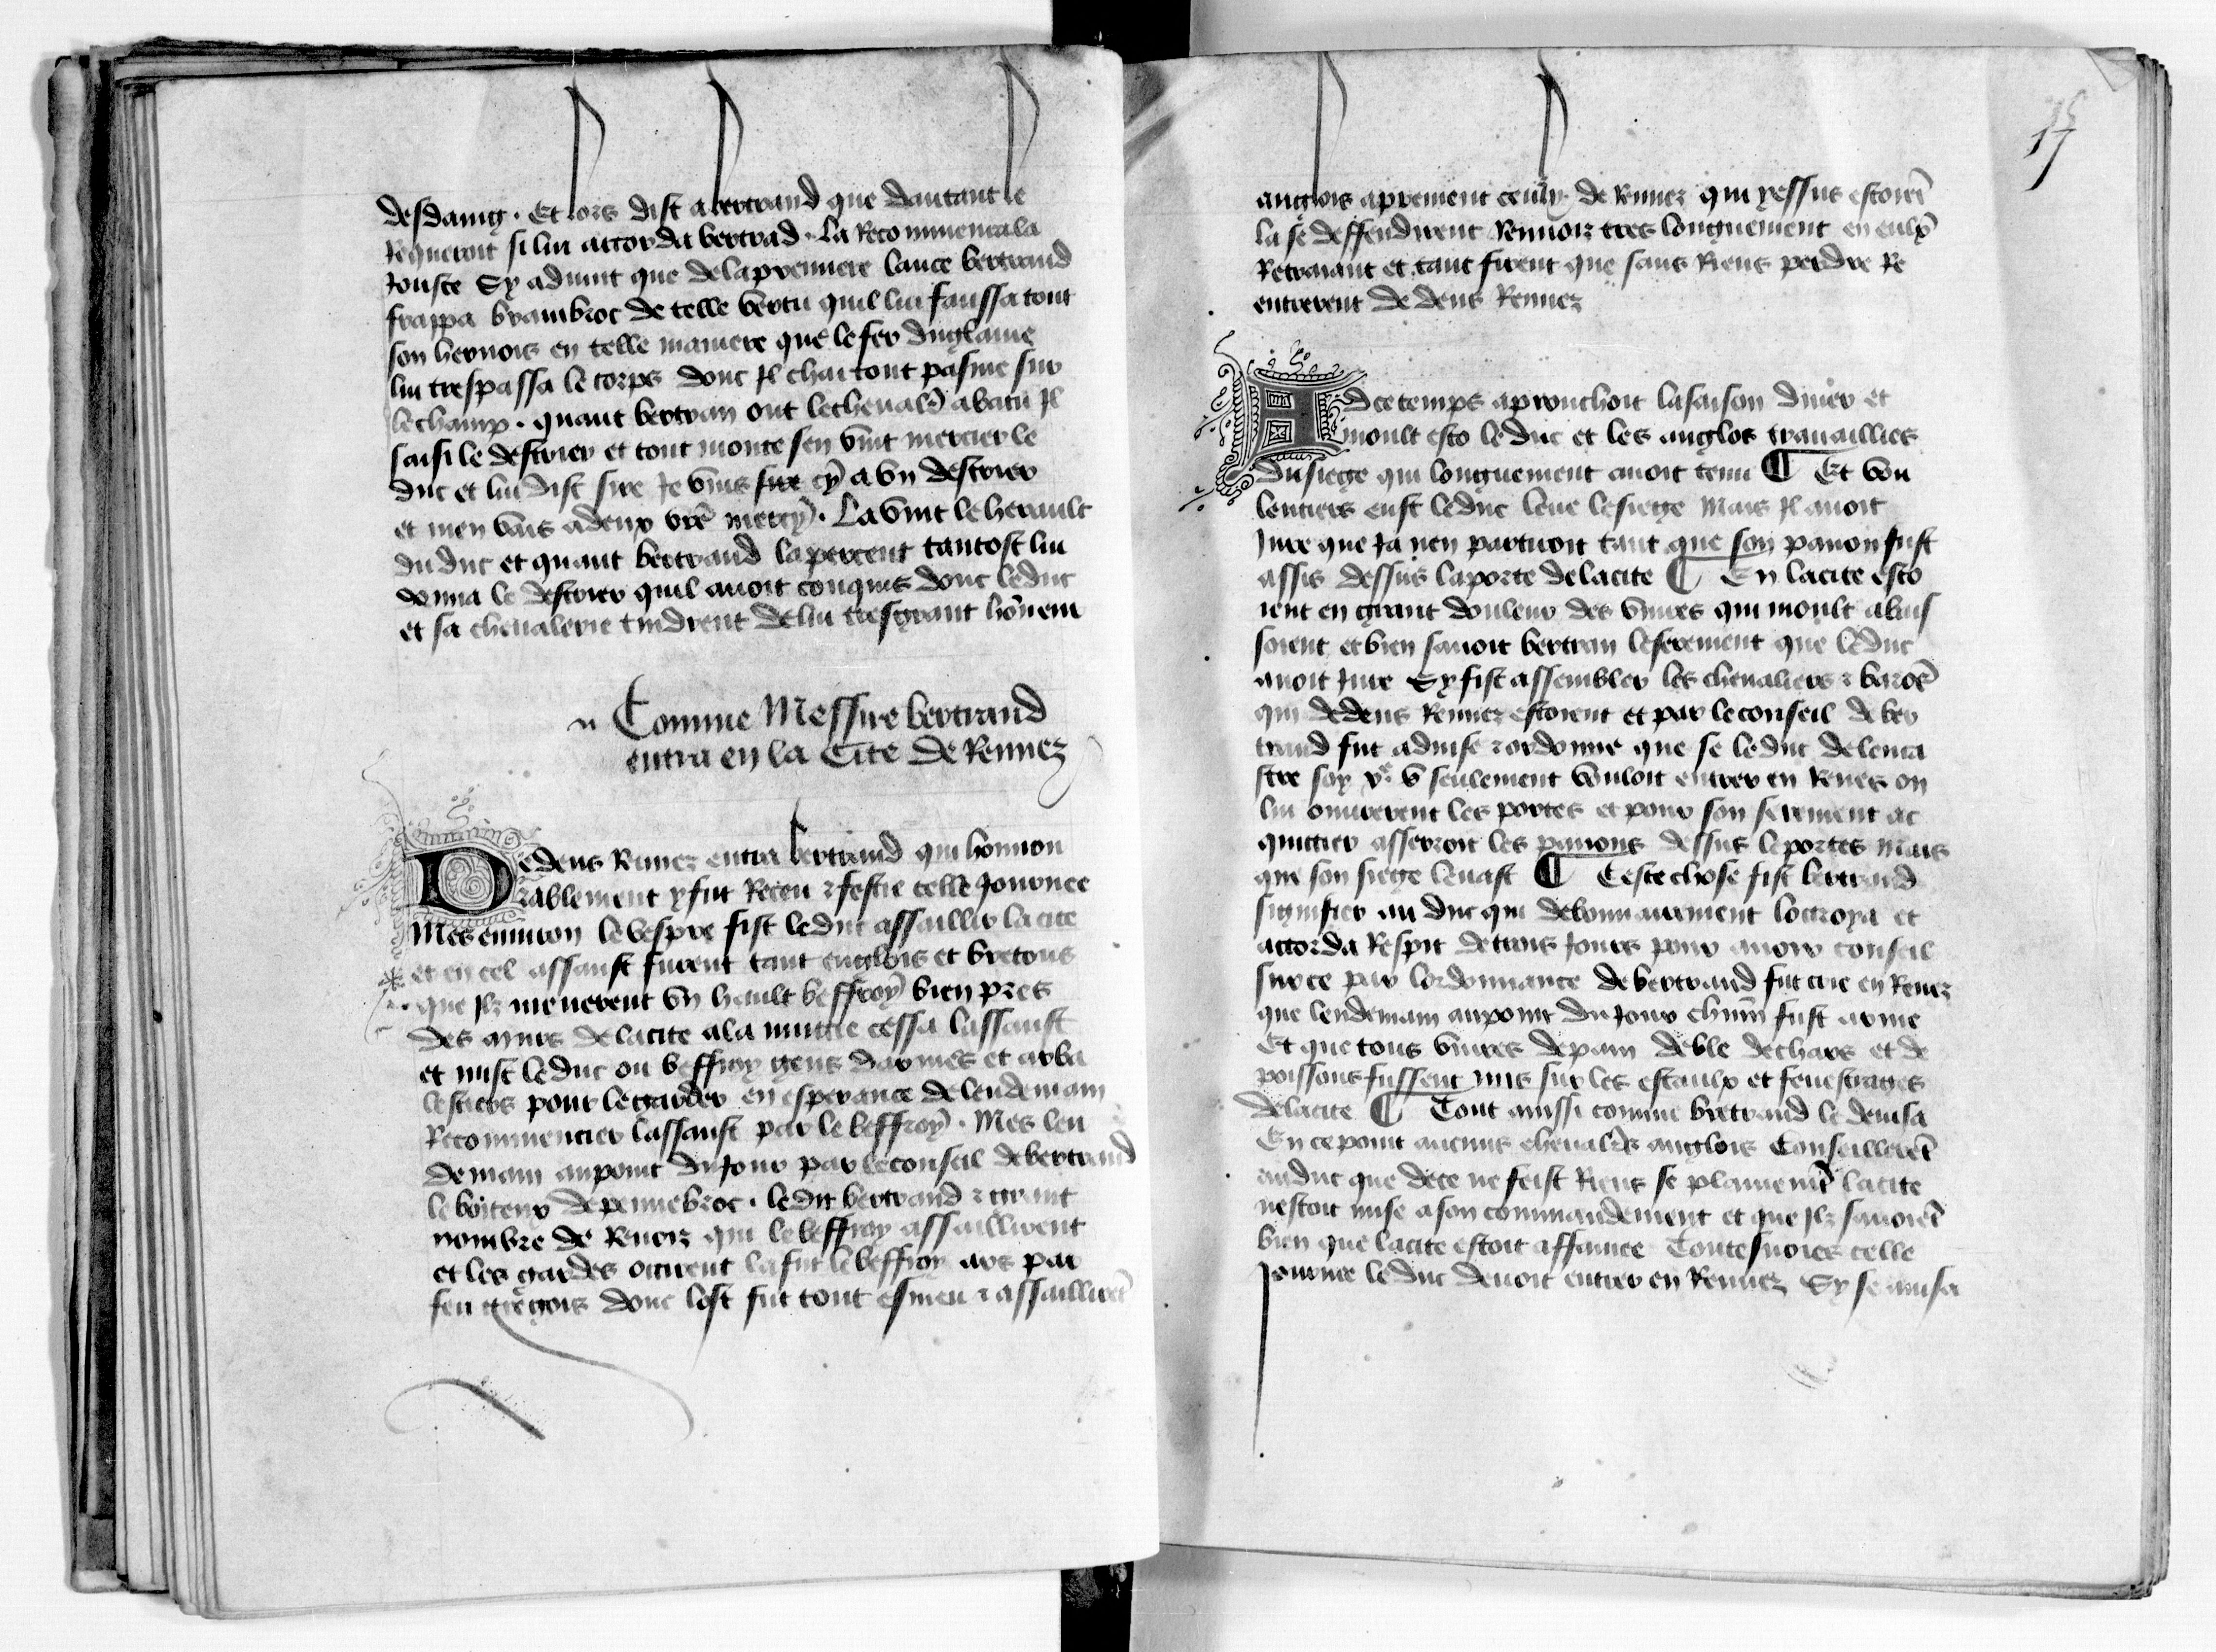 desdaing . Et lors dist a bertrand que dautant le
Requeroit si lui accorda bertrad . La Recommenca la
Jouste Sy aduint que de la premiere lance bertrand
frappa brambroc de telle vertu quil lui faussa tout
son hernois en telle maniere que le fer du glaiue
lui trespassa le corps donc Il chai tout pasme sur
le champ . quant bertran out le cheualr̃ abatu Il
saisi le destrier et tout monte sen vint mercier le
duc et lui dist sire Je vins sire cy a vn destrier
et men vais a deux vr̃e mercy . La vint le herault
du duc et quant bertrand laperceut tantost lui
donna le destrier quil auoit conquis donc le duc
et sa cheualerie tindrent de lui tresgrant hõneur
Comme Messire bertrand
entra en la Cite de Rennez
Dedens Rennez entra bertrand qui honnou
rablement y fut Receu ⁊ festie celle Journee
Mes enuiron le vespre fist le duc assaillir la cite
et en cel assault furent tant englois et bretons
que Ilz menerent vn hault beffroy bien pres
des murs de la cite a la nuttie cessa lassault
et mist le duc ou beffroy gens darmes et arba
lestiers pour le garder en esperance de lendemain
Recommencier lassault par le beffroy . Mes len
demain au point du Jour par le conseil de bertrand
le boiteux de pennebroc . le dit bertrand ⁊ grant
nombre de Renez qui le beffroy assaillirent
et les gardes occirent la fut le beffroy ars par
feu gregois donc lost fut tout esmeu ⁊ assaillirẽt
17
anglois aprement ceulx de Rennez qui yessus estoiẽt
la se deffendirent Rennoiz tres longuement en eulx
Retraiant et tant firent que sans Riens perdre Re
entrerent de dens Rennez
A dce temps aprouchoit la saison diuer et
moult esto le duc et les anglos trauaillies
du siege qui longuement auoit tenu ¶ Et vou
lentiers eust le duc leue le siege Mais Il auoit
Jure que Ja nen partiroit tant que son panon fust
assis dessus la porte de la cite ¶ En la cite esto
ient en grant douleur des viures qui moult abais
soient et bien sauoit bertran le serement que le duc
auoit Jure Sy fist assembler les cheualiers ⁊ barõs
qui dedens Rennez estoient et par le conseil de ber
trand fut aduise ⁊ ordonne que se le duc de lenca
stre soy xe v seulement vouloit entrer en Renes on
lui ouureront les portes et pour son serement ac
quitter asserroit les panons dessus le portes Mais
que son siege leuast ¶ Ceste chose fist bertrand
signifier au duc qui debonnairement loctroya et
accorda Respit de trois Jours pour auoir conseil
sur ce par lordonnance de bertrand fut crie en Renez
que lendemain au point du Jour chũn fust arme
Et que tous viures de pain de ble de chars et de
poissons fussent mis sur les estaulx et fenestrages
de la cite ¶ Tout ainssi comme bertrand le deuisa
En ce point aucuns cheualers anglois Conseillerẽt
au duc que de ce ne feist Riens se plainemt̃ la cite
nestoit mise a son commandement et que Ilz sauoiẽt
bien que la cite estoit affamee Toutesuoies celle
Journee le duc deuoit entrer en Rennez Sy se auisa